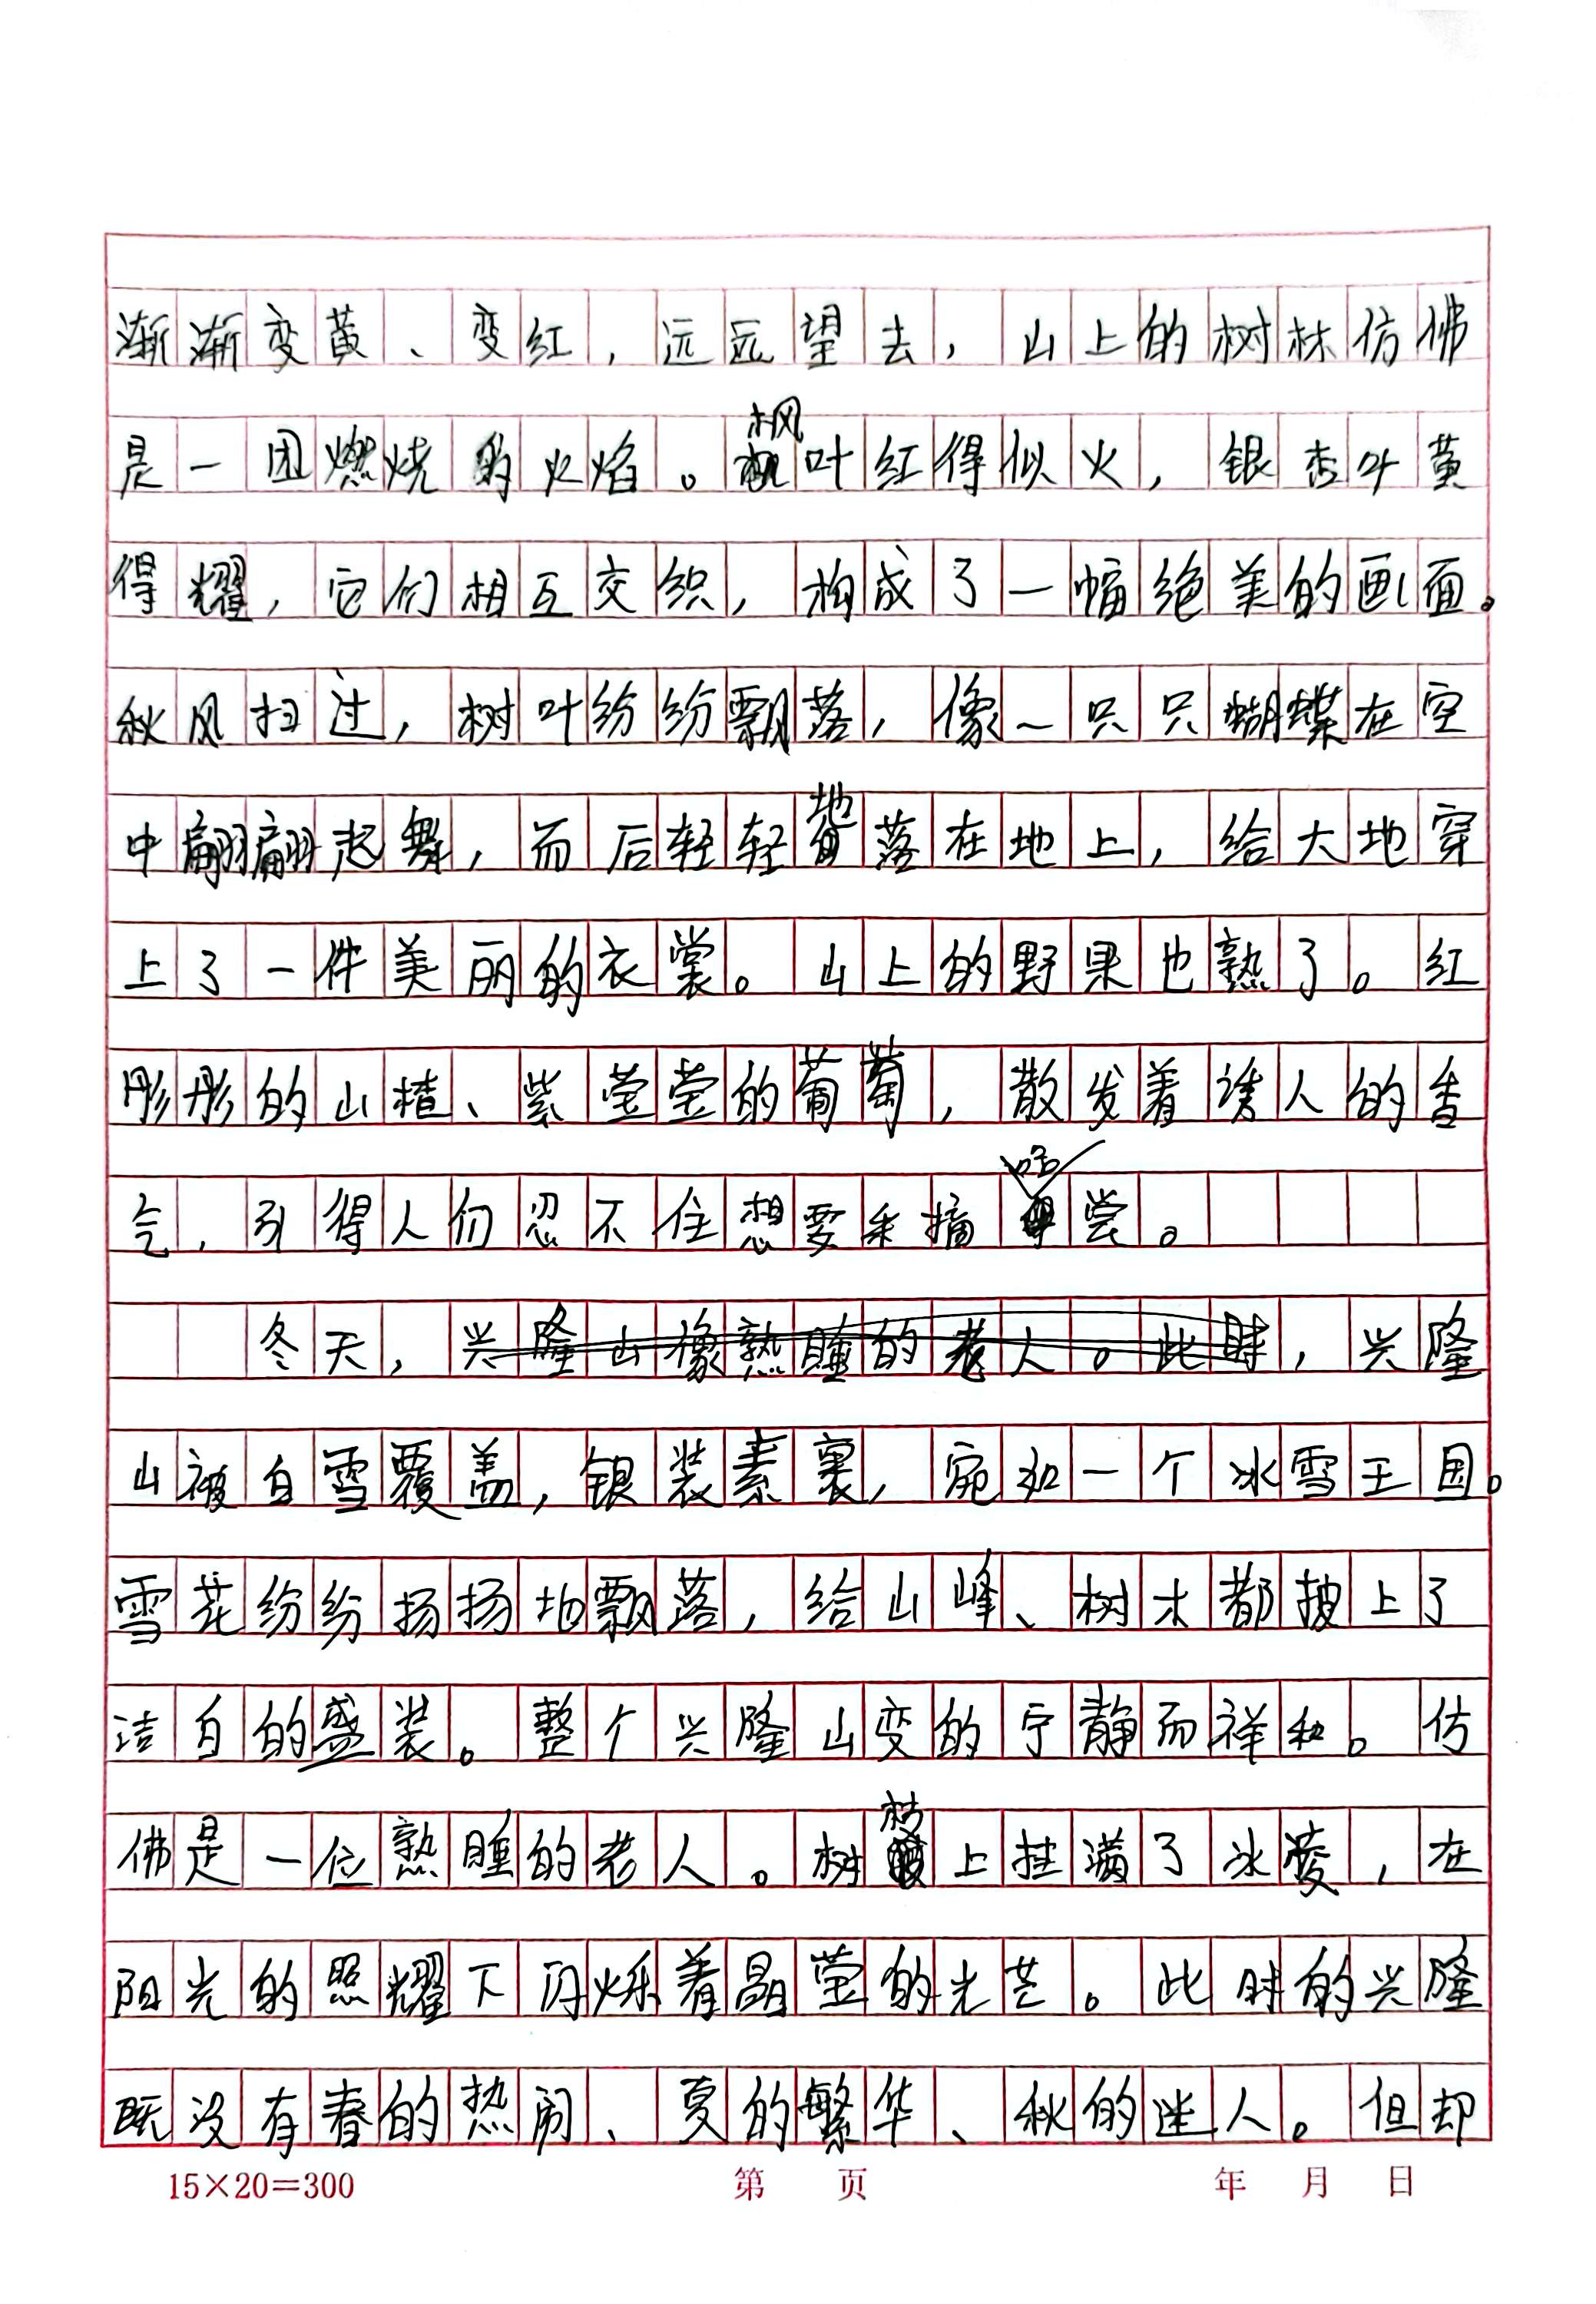 渐渐变黄、变红，远远望去，山上的树林仿佛
是一团燃烧的火焰。枫叶红得似火，银杏叶黄
得耀，它们相互交织，构成了一幅绝美的画面。
秋风扫过，树叶纷纷飘落，像一只只蝴蝶在空
中翩翩起舞，而后轻轻地落在地上，给大地穿
上了一件美丽的衣裳。山上的野果也熟了。红
彤彤的山楂、紫莹莹的葡萄，散发着诱人的香
气，引得人们忍不住想要采摘品尝。
冬天，兴隆山像熟睡的老人。此时，兴隆
山被白雪覆盖，银装素裹，宛如一个冰雪王国。
雪花纷纷扬扬地飘落，给山峰、树木都披上了
洁白的盛装。整个兴隆山变的宁静而祥和。仿
佛是一位熟睡的老人。树枝上挂满了冰凌，在
阳光的照耀下闪烁着晶莹的光芒。此时的兴隆
既没有春的热闹、夏的繁华、秋的迷人。但却
15×20=300 第 页 年 月 日